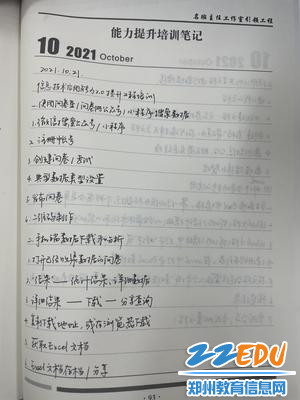 名班主任工作室引领工程
能力提升培训笔记
10 2021 October
2021.10.21.
信息技术应用能力2.0提升工程培训
一、使用问卷星/问卷网公众号/小程序搜集数据
1.微信搜索公众号/小程序
2.注册帐号
3.创建问卷/考试
4.典型数据类型设置
5.发布问卷
6.二维码制作
二、手机端数据下载并分析
1.打开已经收集数据的问卷
2.结果——统计结果、详细数据
3.详细结果——下载——分享查询
4.复制下载地址,或在浏览器下载
5.获取Excel文档
6.Excel文档存档/分享
·93·
22EDU
郑州教育信息网